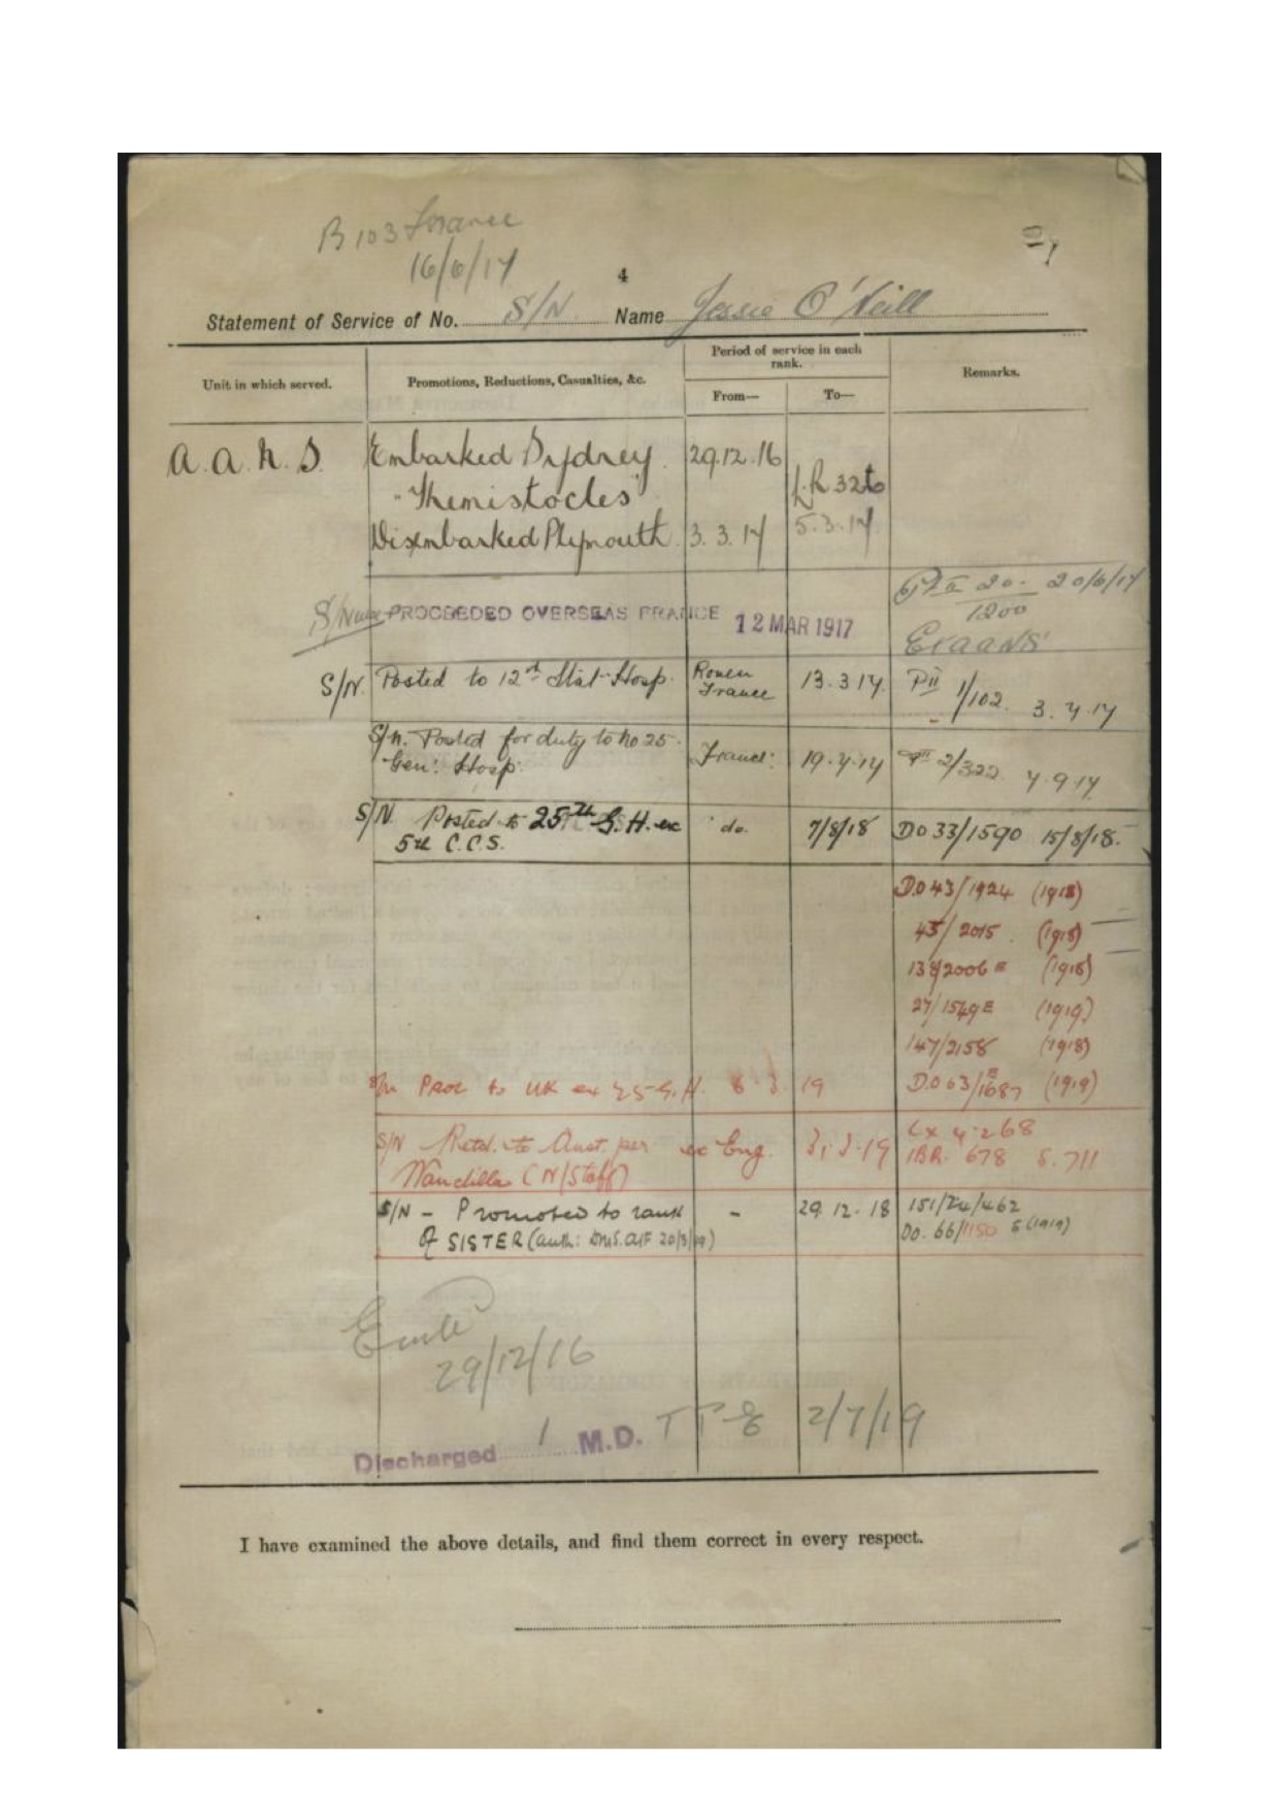 B 103 France
16/6/17
4
Statement of Service of No. S/N Name Jessie O'Neill
Unit in which served.
Promotions, Reductions, Casualties, &c.
Period of service in each rank.
From—
To—
Remarks.
A.A.N.S. Embarked Sydney 29.12.16
"Themistocles" L.R 32 to
Disembarked Plymouth 3.3.17 5.3.17
20/6/17
1200
S/Nurse PROCEEDED OVERSEAS FRANCE 12 MAR 1917
S/N. Posted to 12th Stat Hosp. Rouen France 13.3.17 PII 1/102. 3.4.17
S/N. Posted for duty to No 25 Gen: Hosp: France: 19.4.17 2/322 4.9.17
S/N Posted to 25th G.H. ex 5th C.C.S. do. 7/8/18 DO 33/1590 15/8/18.
D.O 43/1924 (1918)
45/2015 (1918)
138/2006 E (1918)
27/1549 E (1919)
147/2158 (1918)
S/N Proc to UK ex 25 G.H. 6 3 19 D.O 63/1687 (1919)
S/N Retd. to Aust. per ex Eng. 31.3.19 Lx 4.268
Wandilla (N/Staff) IBR. 678 S.711
S/N - Promoted to rank - 29.12.18 151/24/462
of SISTER (auth: DMS. AIF 20/3/19) DO. 66/1150 S (1919)
29/12/16
Discharged 1 M.D. T P E 2/7/19
I have examined the above details, and find them correct in every respect.